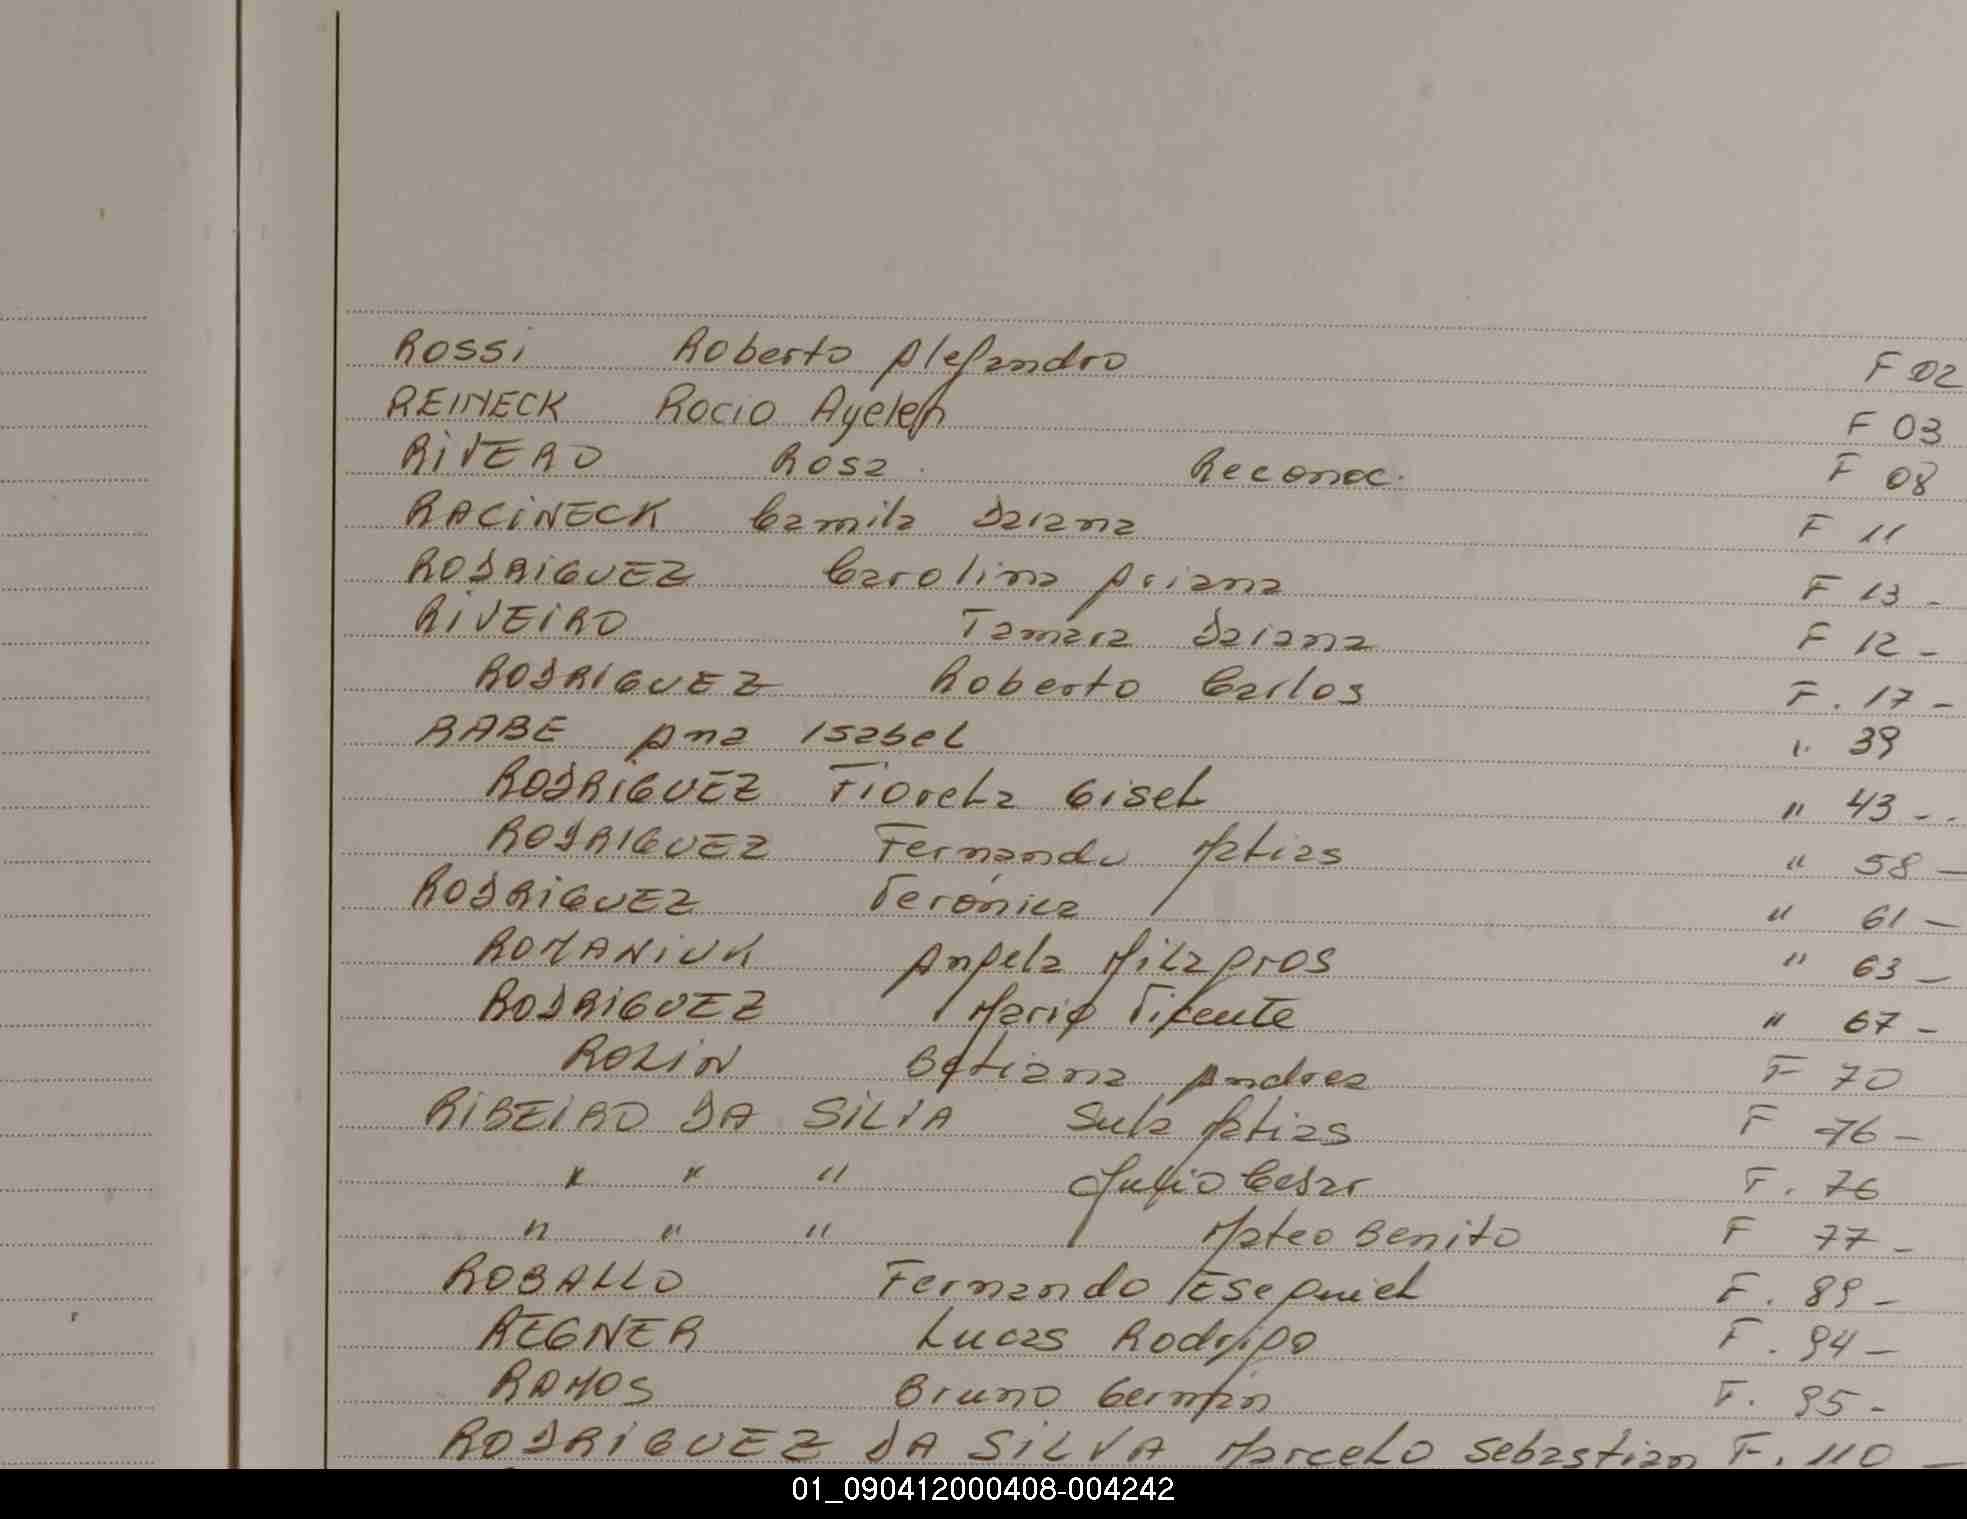 ROSSI Roberto Alejandro F 02
REINECK Rocio Ayelen F 03
RIVERO Rosa Reconoc. F 08
RACINECK Camila Daiana F 11
RODRIGUEZ Carolina Ariana F 13 -
RIVEIRO Tamara Daiana F 12 -
RODRIGUEZ Roberto Carlos F. 17 -
RABE Ana Isabel " 39
RODRIGUEZ Fiorela Gisel " 43 -
RODRIGUEZ Fernando Matias " 58 -
RODRIGUEZ Verónica " 61 -
ROMANIUK Angela Milagros " 63 -
RODRIGUEZ Mario Vicente " 67 -
ROLIN Andrea F 70
RIBEIRO DA SILVA Matias F 76 -
" " " Julio Cesar F. 76
" " " Mateo Benito F 77 -
ROBALLO Fernando Esequiel F. 89 -
REGNER Lucas Rodrigo F. 94 -
RAMOS Bruno German F. 95 -
RODRIGUEZ DA SILVA Marcelo Sebastian F. 110 -
01_090412000408-004242